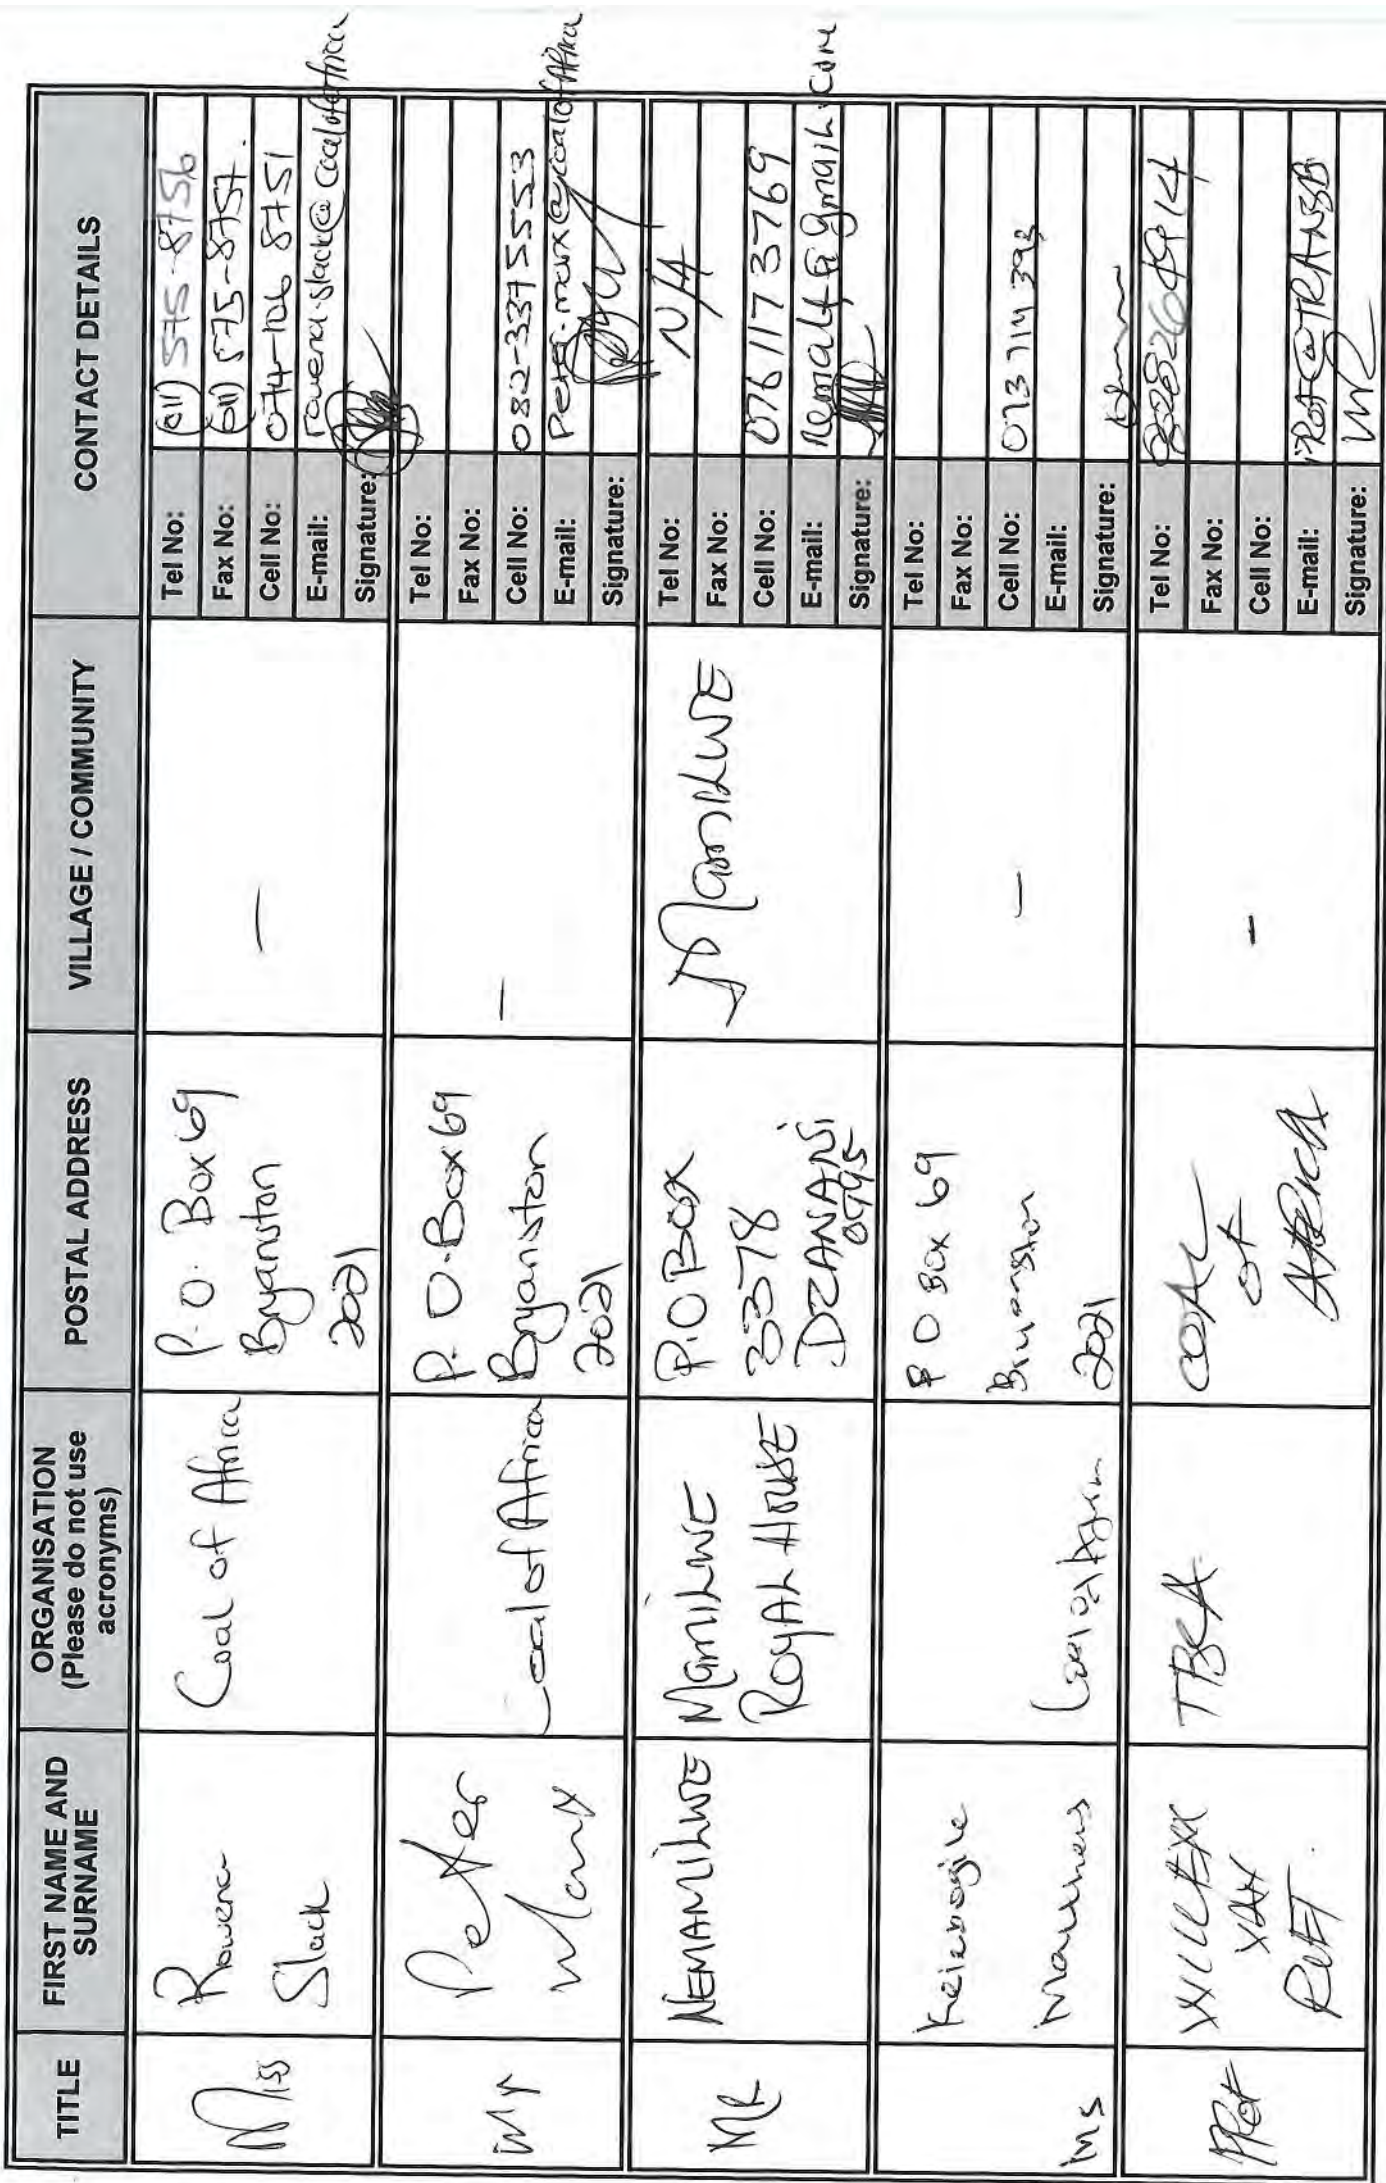 TITLE
FIRST NAME AND
SURNAME
ORGANISATION
(Please do not use
acronyms)
POSTAL ADDRESS
VILLAGE / COMMUNITY
CONTACT DETAILS
Miss
Rowena
Slack
Coal of Africa
P.O. Box 69
Bryanston
2021
—
Tel No: (011) 575-8756
Fax No: (011) 575-8757.
Cell No: 074-106 8751
E-mail: rowena.slack@coalofafrica
Signature:
Mr
Peter
Marx
Coal of Africa
P.O. Box 69
Bryanston
2021
—
Tel No:
Fax No:
Cell No: 082-337 5553
E-mail: Peter.marx@coalofafrica
Signature:
MR
NEMAMILWE
MAMILWE
ROYAL HOUSE
P.O BOX
3378
DZANANI
0995
MAMILWE
Tel No: N/A
Fax No:
Cell No: 076 117 3769
E-mail:
Signature:
Ms
P O Box 69
Bryanston
2021
—
Tel No:
Fax No:
Cell No: 073 714 392
E-mail:
Signature:
Prof
WILLEM
VAN
TBCA
COAL
OF
AFRICA
-
Tel No:
Fax No:
Cell No:
E-mail:
Signature: